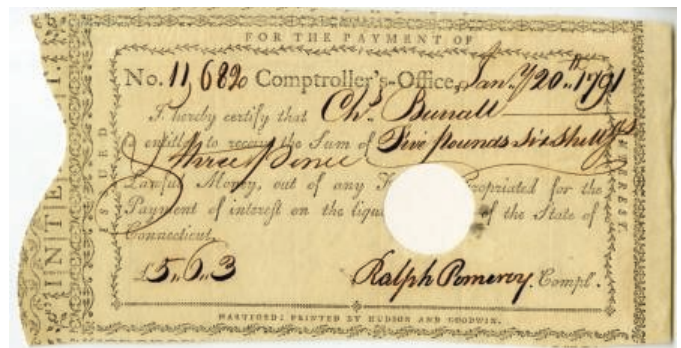 FOR THE PAYMENT OF
No. 11,682 Comptroller's-Office, Jan.y 20th 1791
I hereby certify that Chs. Burrall
is entitled to receive the Sum of Five pounds six Shillgs
three Pence
Lawful Money, out of any appropriated for the
Payment of interest on the liqui of the State of
Connecticut.
£5,,6,,3
Ralph Pomeroy. Compt.
HARTFORD: PRINTED BY HUDSON AND GOODWIN.
ISSUED
INTEREST.
INTE